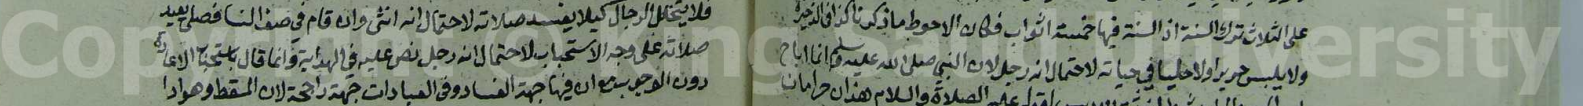 على الثلاث ترك السنة اذ السنة فيها خمسة اثواب فكان الاحوط ما ذكرنا كذا فى الذخيرة
ولا يلبس حريرا ولا حليا في حياته لاحتمال انه رجل لان النبي صلى الله عليه وسلم انما اباح
عليه الصلاة والسلام هذان حرامان
فلا يتخلل الرجال كيلا يفسد صلاته لاحتمال انه انثى وان قام في صف النسا فصلى يعيد
صلاته على وجه الاستحباب لاحتمال انه رجل نص عليه في الهداية وانما قال باستحباب الاعادة
دون الوجوب مع ان فيها جهة الفساد وفى العبادات جهة راجحة لان المسقط وهو ادا
Copy University